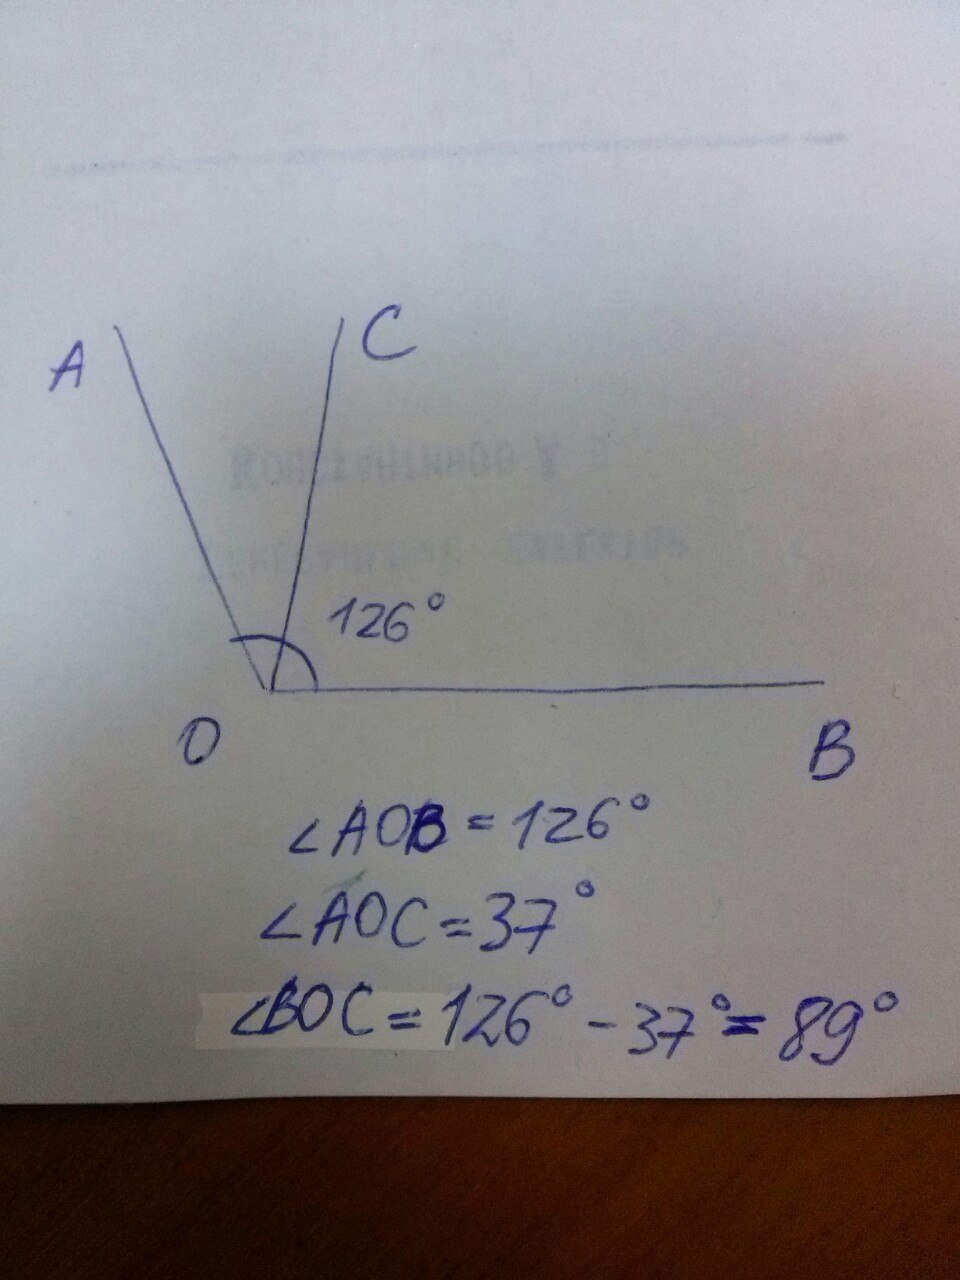 A
C
126°
O
B
∠AOB = 126°
∠AOC = 37°
∠BOC = 126° - 37° = 89°